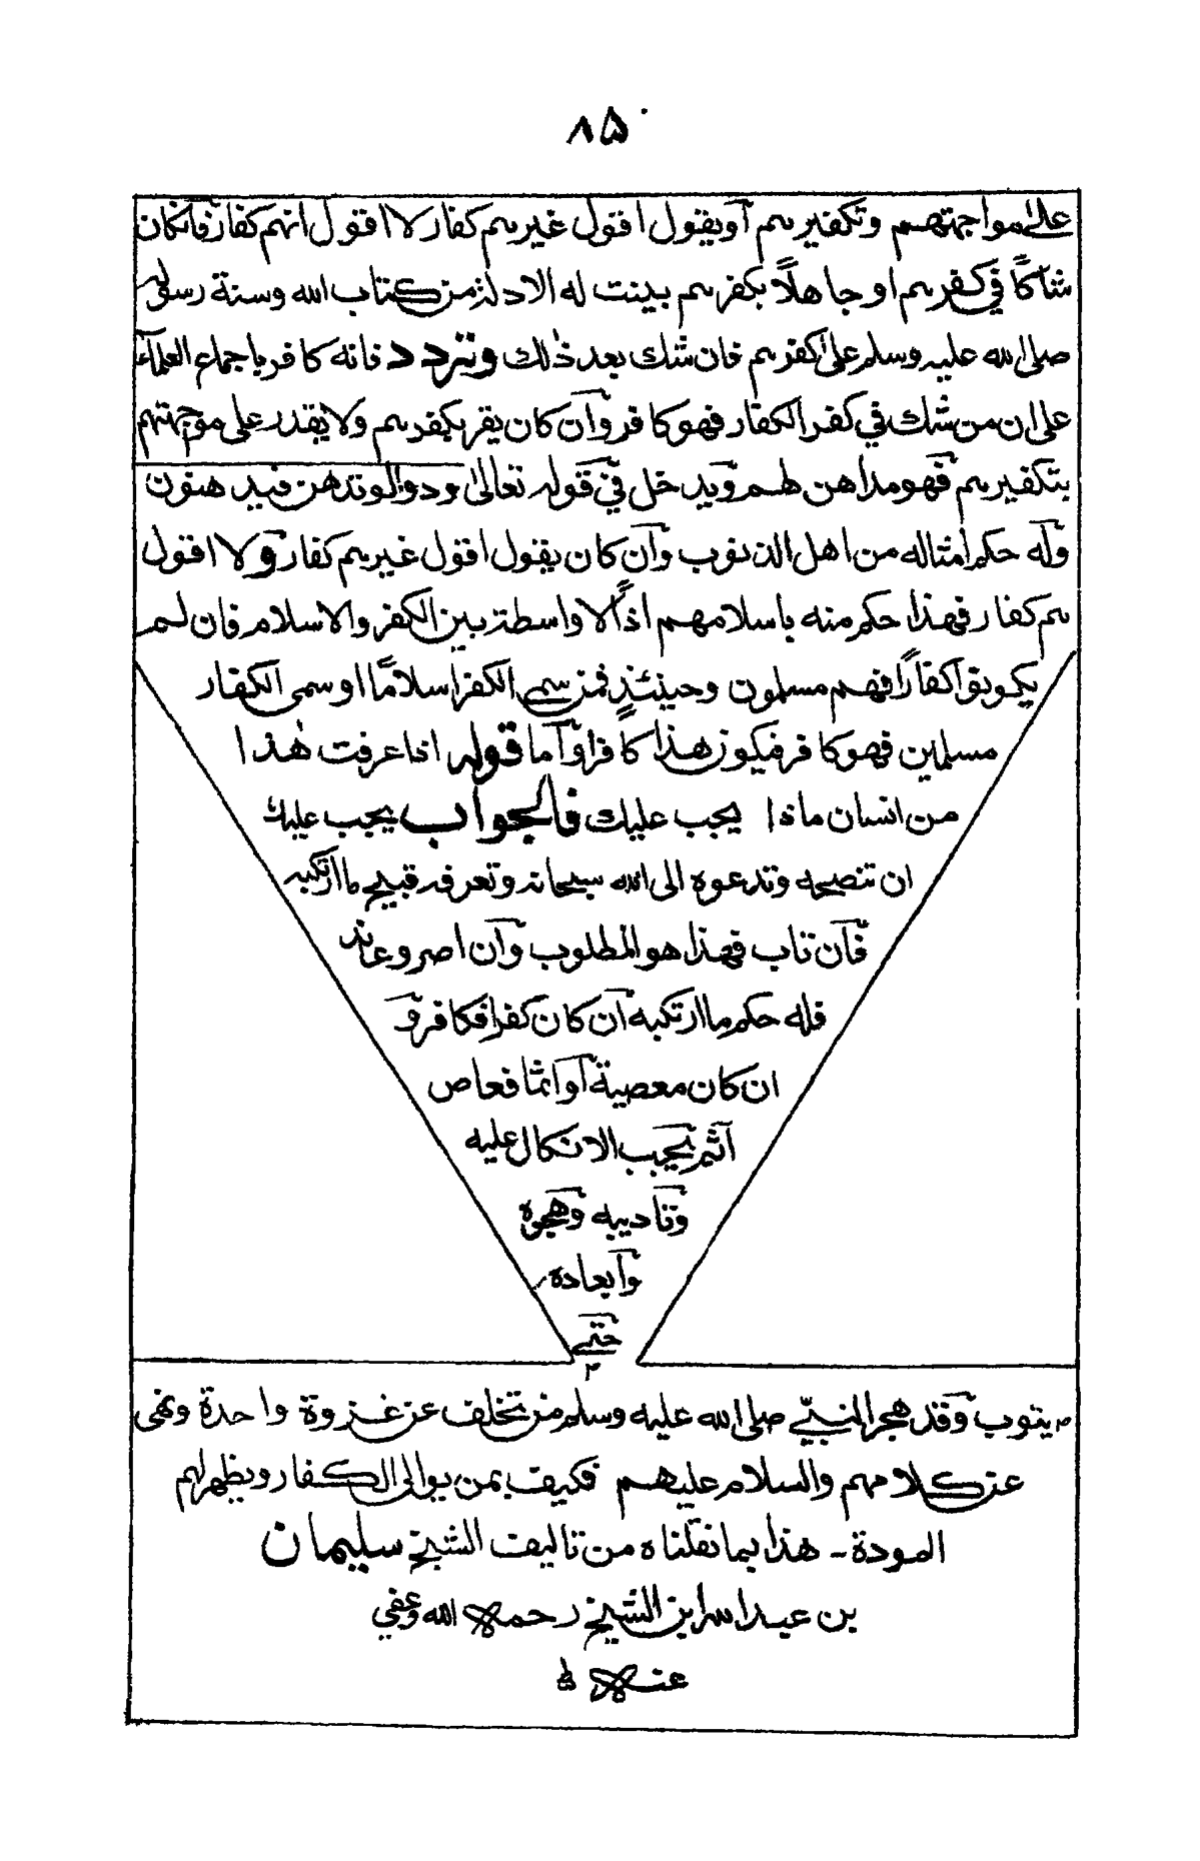 ٨٥
على مواجهتهم وتكفيرهم أو يقول اقول غيرهم كفار لا اقول انهم كفار فان كان
شاكًا في كفرهم او جاهلًا بكفرهم بينت له الادلة من كتاب الله وسنة رسوله
صلى الله عليه وسلم على كفرهم فان شك بعد ذٰلك وتردد فانه كافر باجماع العلمآء
على ان من شك في كفر الكفار فهو كافر وآن كان يقر بكفرهم ولا يقدر على مواجهتهم
بتكفيرهم فهو مداهن لهم ويدخل في قوله تعالى ودوا لو تدهن فيدهنون
وله حكم امثاله من اهل الذنوب وآن كان يقول اقول غيرهم كفار ولا اقول
هم كفار فهذا حكم منه باسلامهم اذًا لا واسطة بين الكفر والاسلام فان لم
يكونوا كفارًا فهم مسلمون وحينئذٍ فمن سمى الكفر اسلامًا او سمى الكفار
مسلمين فهو كافر فيكون هذا كافرًا وآما قوله اذا عرفت هٰذا
من انسان ماذا يجب عليك فالجواب يجب عليك
ان تنصحه وتدعوه الى الله سبحانه وتعرفه قبيح ما ارتكبه
فآن تاب فهذا هو المطلوب وآن اصر وعاند
فله حكم ما ارتكبه آن كان كفرا فكافر و
ان كان معصية آو اثما فعاص
آثم يجب الانكار عليه
وتاديبه وهجره
وآبعاده
حتى
٢
٢ يتوب وقد هجر النبي صلى الله عليه وسلم من تخلف عن غزوة واحدة ونهى
عن كلامهم والسلام عليهم فكيف بمن يوالى الكفار ويظهر لهم
المودة ـ هذا بما نقلناه من تاليف الشيخ سليمان
بن عبد الله ابن الشيخ رحمه الله وعفي
عنه